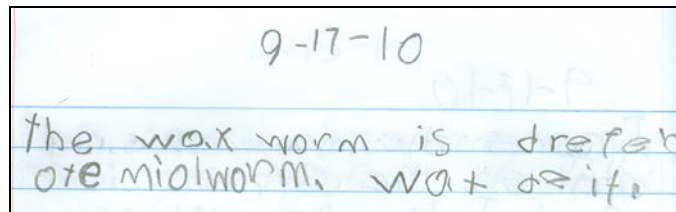 9-17-10
the wax worm is drefer
ore miolworm. wax